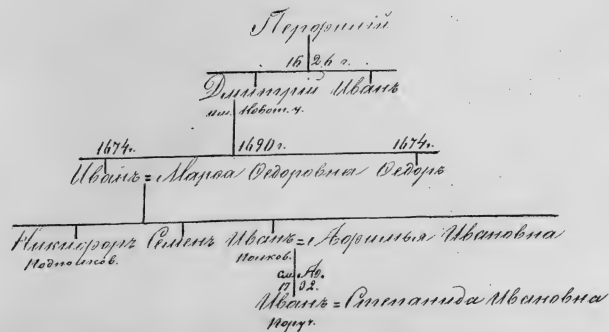 Перфилій
1626 г.
Дмитрій Иванъ
им. Новот. у.
1674г. 1690г. 1674г.
Иванъ = Марѳа Ѳедоровна Ѳедоръ
Никифоръ Семенъ Иванъ = Афимья Ивановна
Подполков. Полков.
См. № 
1702.
Иванъ = Степанида Ивановна
Поруч.